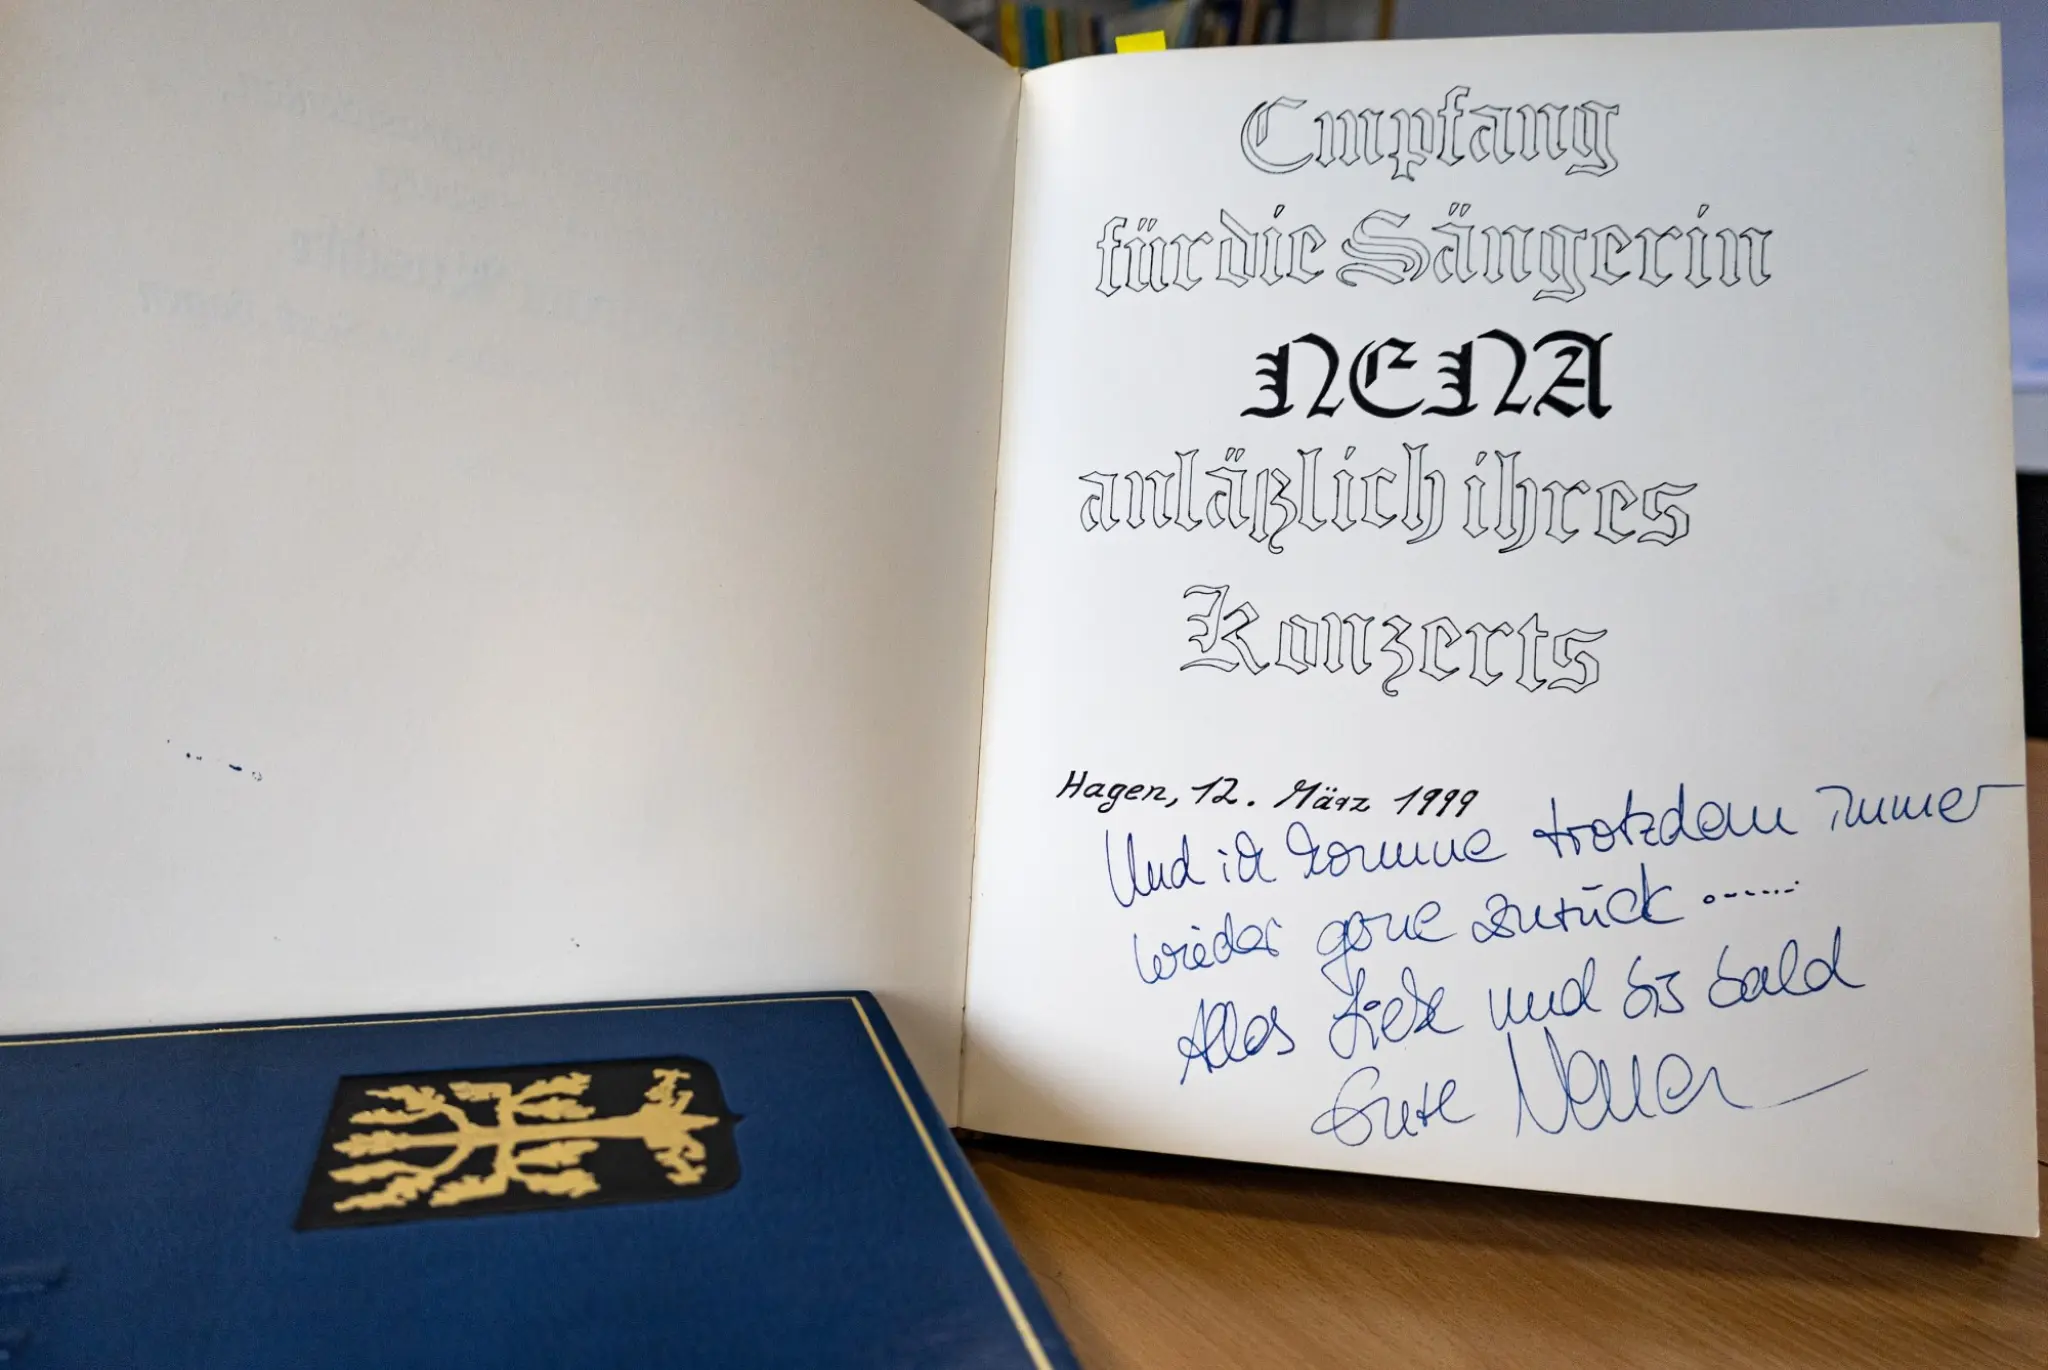 Empfang
für die Sängerin
NENA
anläßlich ihres
Konzerts
Hagen, 12. März 1999
Und ich komme trotzdem immer
wieder gerne zurück ........
Alles Liebe und bis bald
Eure Nena